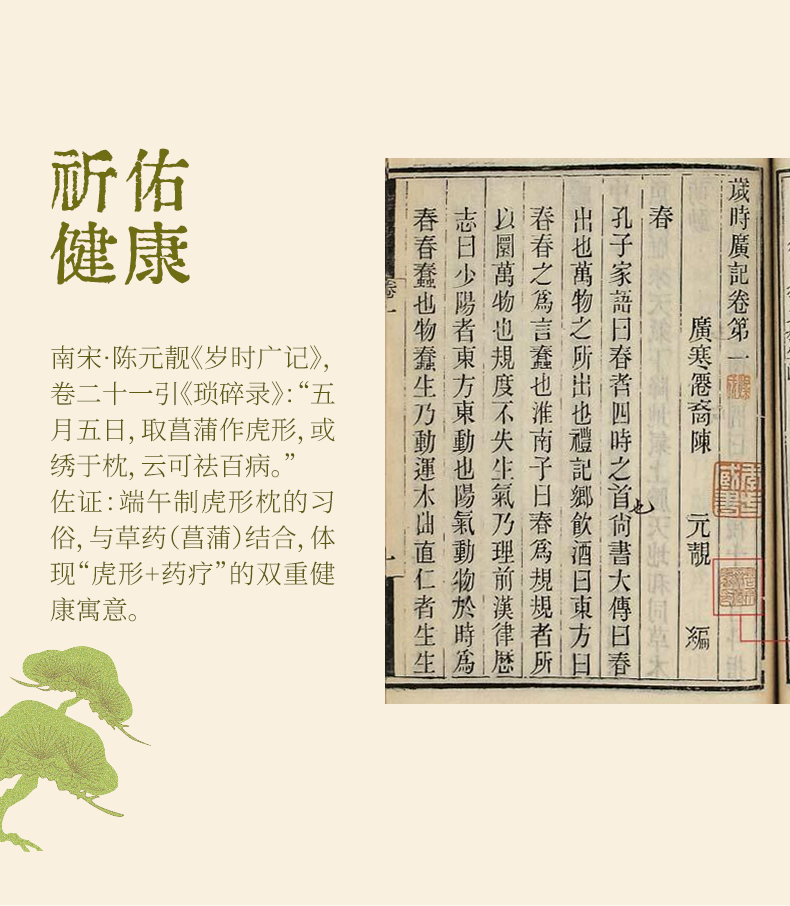 祈佑
健康
南宋·陈元靓《岁时广记》,
卷二十一引《琐碎录》:“五
月五日,取菖蒲作虎形,或
绣于枕,云可祛百病。”
佐证:端午制虎形枕的习
俗,与草药(菖蒲)结合,体
现“虎形+药疗”的双重健
康寓意。
歲時廣記卷第一
廣寒僊裔陳 元靚 編
春
孔子家語曰春者四時之首尚書大傳曰春
出也萬物之所出也禮記鄉飲酒曰東方曰
春春之為言蠢也淮南子曰春為規規者所
以圜萬物也規度不失生氣乃理前漢律歷
志曰少陽者東方東動也陽氣動物於時為
春春蠢也物蠢生乃動運木曲直仁者生生